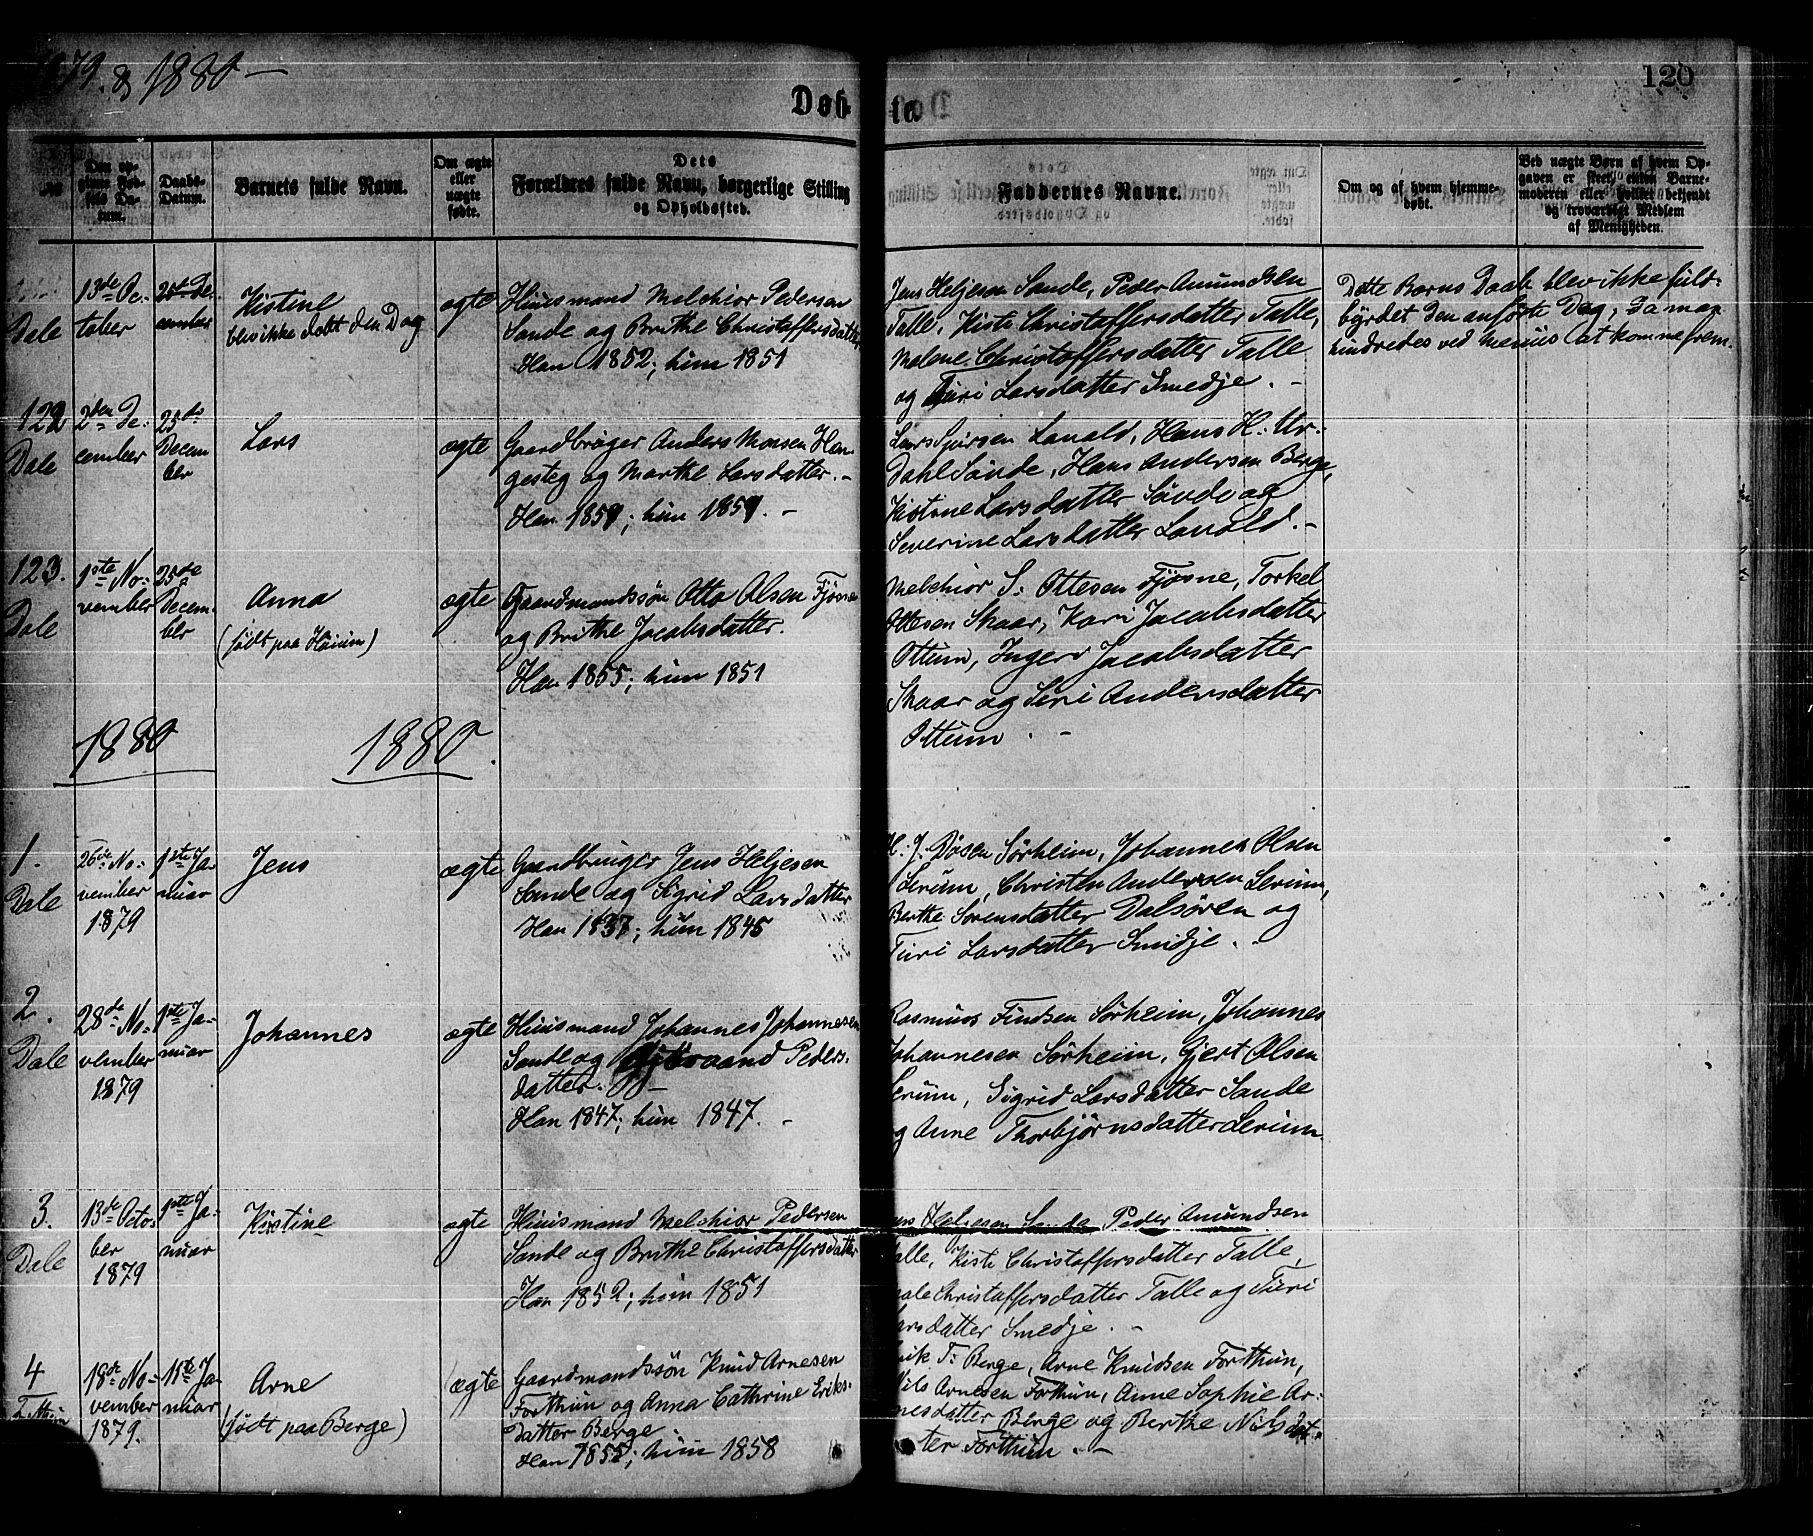 1879 & 1880 —
120
Døb
te
No
Den op-
givne Fød-
sels Da-
tum.
Daabs-
Datum.
Barnets fulde Navn.
Om ægte
eller
uægte
fødte.
Dets
Forældres fulde Navn, borgerlige Stilling
og Opholdssted.
Faddernes Navne.
Om og af hvem hjemme-
døbt.
Ved uægte Børn af hvem Op-
gaven er skeet, enten Barne-
moderen eller hvilket bekjendt
og troværdigt Medlem
af Menigheden.
Dale
13de Oc-
tober
25de De-
cember
Kistine
blev ikke døbt den Dag
ægte
Huusmand Melchior Pedersen
Sande og Brithe Christaffersdatter
Han 1852; hun 1851
Jens Heljesen Sande, Peder Amundsen
Talle, Kisti Christaffersdatter Talle,
Malene Christaffersdatter Talle
og Turi Larsdatter Smedje. -
Dette Barns Daab blev ikke fuld-
byrdet den anførte Dag, da man
hindredes ved Meniis at komme frem.
122
Dale
2den De-
cember
25de
Decem
ber
Lars
ægte
Gaardbruger Anders Monsen Han
gesteg og Marthe Larsdatter. -
Han 1851; hun 1851. -
Lars Sjursen Lanald, Hans H. Ur-
dahl Søvde, Hans Andersen Berge,
Kistine Larsdatter Søvde og
Severine Larsdatter Lanald. -
123.
Dale
1ste No-
vember
25de
Decem-
ber
Anna
(født paa Høium)
ægte
Gaardmandssøn Otto Olsen Fjøsne
og Brithe Jacobsdatter.
Han 1855; hun 1851
Melchior S. Ottesen Fjøsne, Torkel
Ottesen Skaar, Kari Jacobsdatter
Ottum, Inger Jacobsdatter
Skaar og Siri Andersdatter
Ottum. -
1880 1880.
1.
Dale
26de No-
vember
1879
1ste Ja-
nuar
Jens
ægte
Gaardbruger Jens Heljesen
Sande og Sigrid Larsdatter
Han 1837; hun 1845
H. J. Døsen Sørheim, Johannes Olsen
Lerum, Christen Andersen Lerum,
Berthe Sørensdatter Dalsøren og
Turi Larsdatter Smedje. -
2.
Dale
28de No-
vember
1879
1ste Ja-
nuar
Johannes
ægte
Huusmand Johannes Johannesen
Sande og Gjørvaand Peders-
datter. -
Han 1847; hun 1847. -
Rasmus Findsen Sørheim, Johannes
Johannesen Sørheim, Gjert Olsen
Lerum, Sigrid Larsdatter Sande
og Anne Thorbjørnsdatter Lerum.
3.
Dale
13de Octo-
ber
1879
1ste Ja-
nuar
Kistine
ægte
Huusmand Melchior Pedersen
Sande og Brithe Christaffersdatter
Han 1852; hun 1851
Jens Heljesen Sande, Peder Amundsen
Talle, Kisti Christaffersdatter Talle,
Male Christaffersdatter Talle og Turi
Larsdatter Smedje. -
4
18de No-
vember
1879.
18de Ja-
nuar
Arne
(født paa Berge)
ægte
Gaardmandssøn Knud Arnesen
Forthun og Anna Cathrine Eriks-
datter Berge.
Han 1855; hun 1858
Erik T. Berge, Arne Knudsen Forthun,
Nils Arnesen Forthun, Anne Sophie Ar-
nesdatter Berge og Berthe Nilsdat-
ter Forthun. -